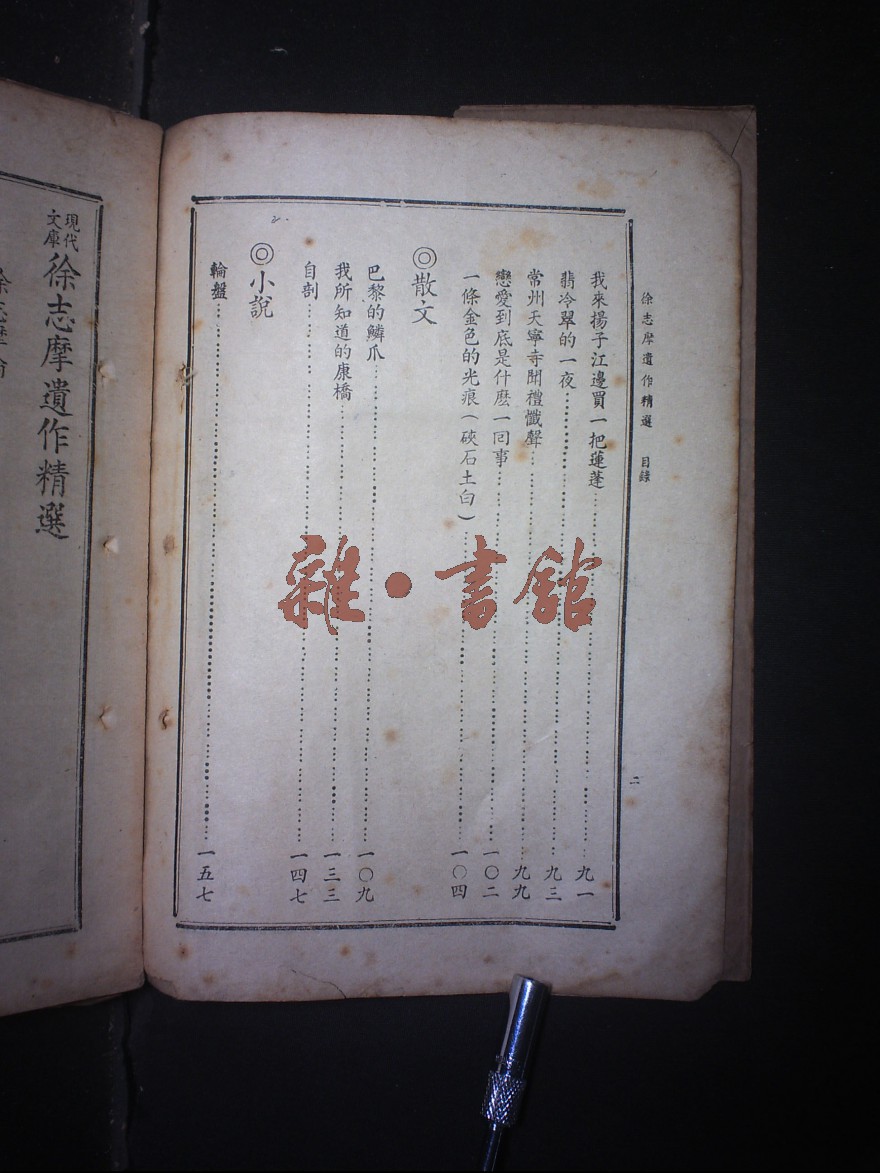 徐志摩遺作精選　目錄
二
我來揚子江邊買一把蓮蓬……九一
翡冷翠的一夜……九三
常州天寧寺聞禮懺聲……九九
戀愛到底是什麽一囘事……一〇二
一條金色的光痕（硤石土白）……一〇四
◎散文
巴黎的鱗爪……一〇九
我所知道的康橋……一三三
自剖……一四七
◎小說
輪盤……一五七
現代文庫
徐志摩遺作精選
雜·書館